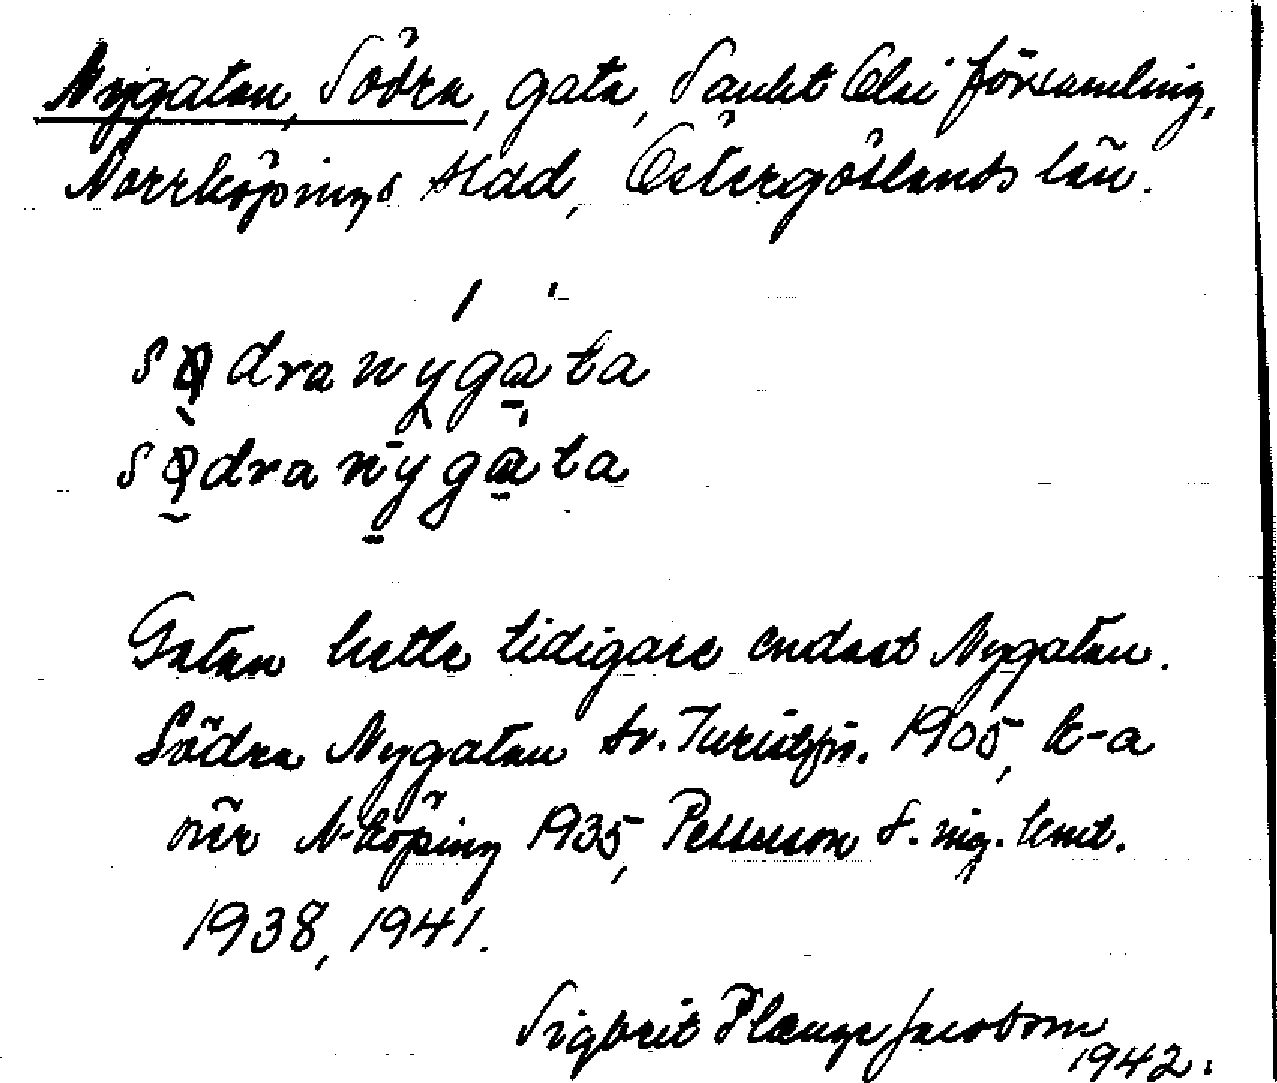 Nygatan, Södra, gata, Sankt Olai församling,
Norrköpings stad, Östergötlands län.
södra nygata
södra nygata
Gatan hette tidigare endast Nygatan.
Södra Nygatan Sv. Turistför. 1905, k-a
över N-köping 1935, Pettersson
1938, 1941.
Sigbrit Plænge Jacobson
1942.